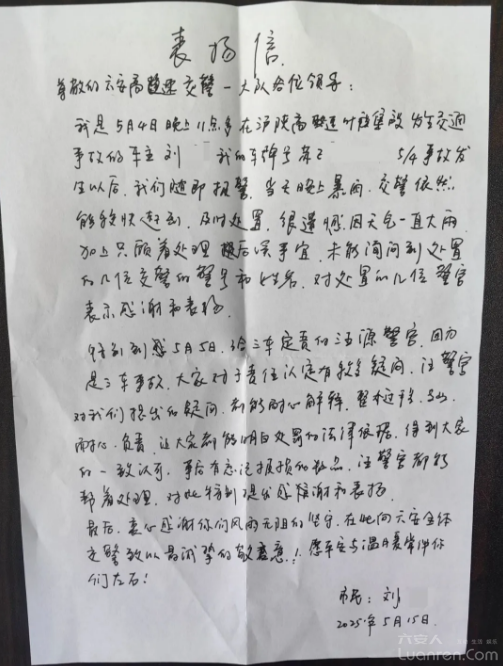 表扬信
尊敬的六安高速交警一大队各位领导：
我是5月4日晚上11点多在沪陕高速叶庄堡段发生交通
事故的车主刘 我的车牌号苏E 5/4事故发
生以后，我们随即报警，当天晚上暴雨，交警依然
能够快速到，及时处置，很遗憾，因天气一直大雨
加上只顾着处理善后误事宜，未能询问到处置
的几位交警的警号和姓名，对处置的几位警官
表示感谢和表扬。
特别到感5月5日，给三车定责的汪源警官，因为
是三车事故，大家对于责任认定有较多疑问，汪警官
对我们提出的疑问，都能耐心解释，整个过程，
耐心，负责，让大家都能明白处罚的法律依据，得到大家
的一致认可，事后有忘记报损的地点，汪警官都能
帮着处理，对此特别提出感谢和表扬
最后，衷心感谢你们风雨无阻的坚守，在此向六安全体
交警致以最诚挚的敬意！愿平安与温暖常伴你
们左右！
市民：刘
2025年5月15日.
六安人
Luanren.Com